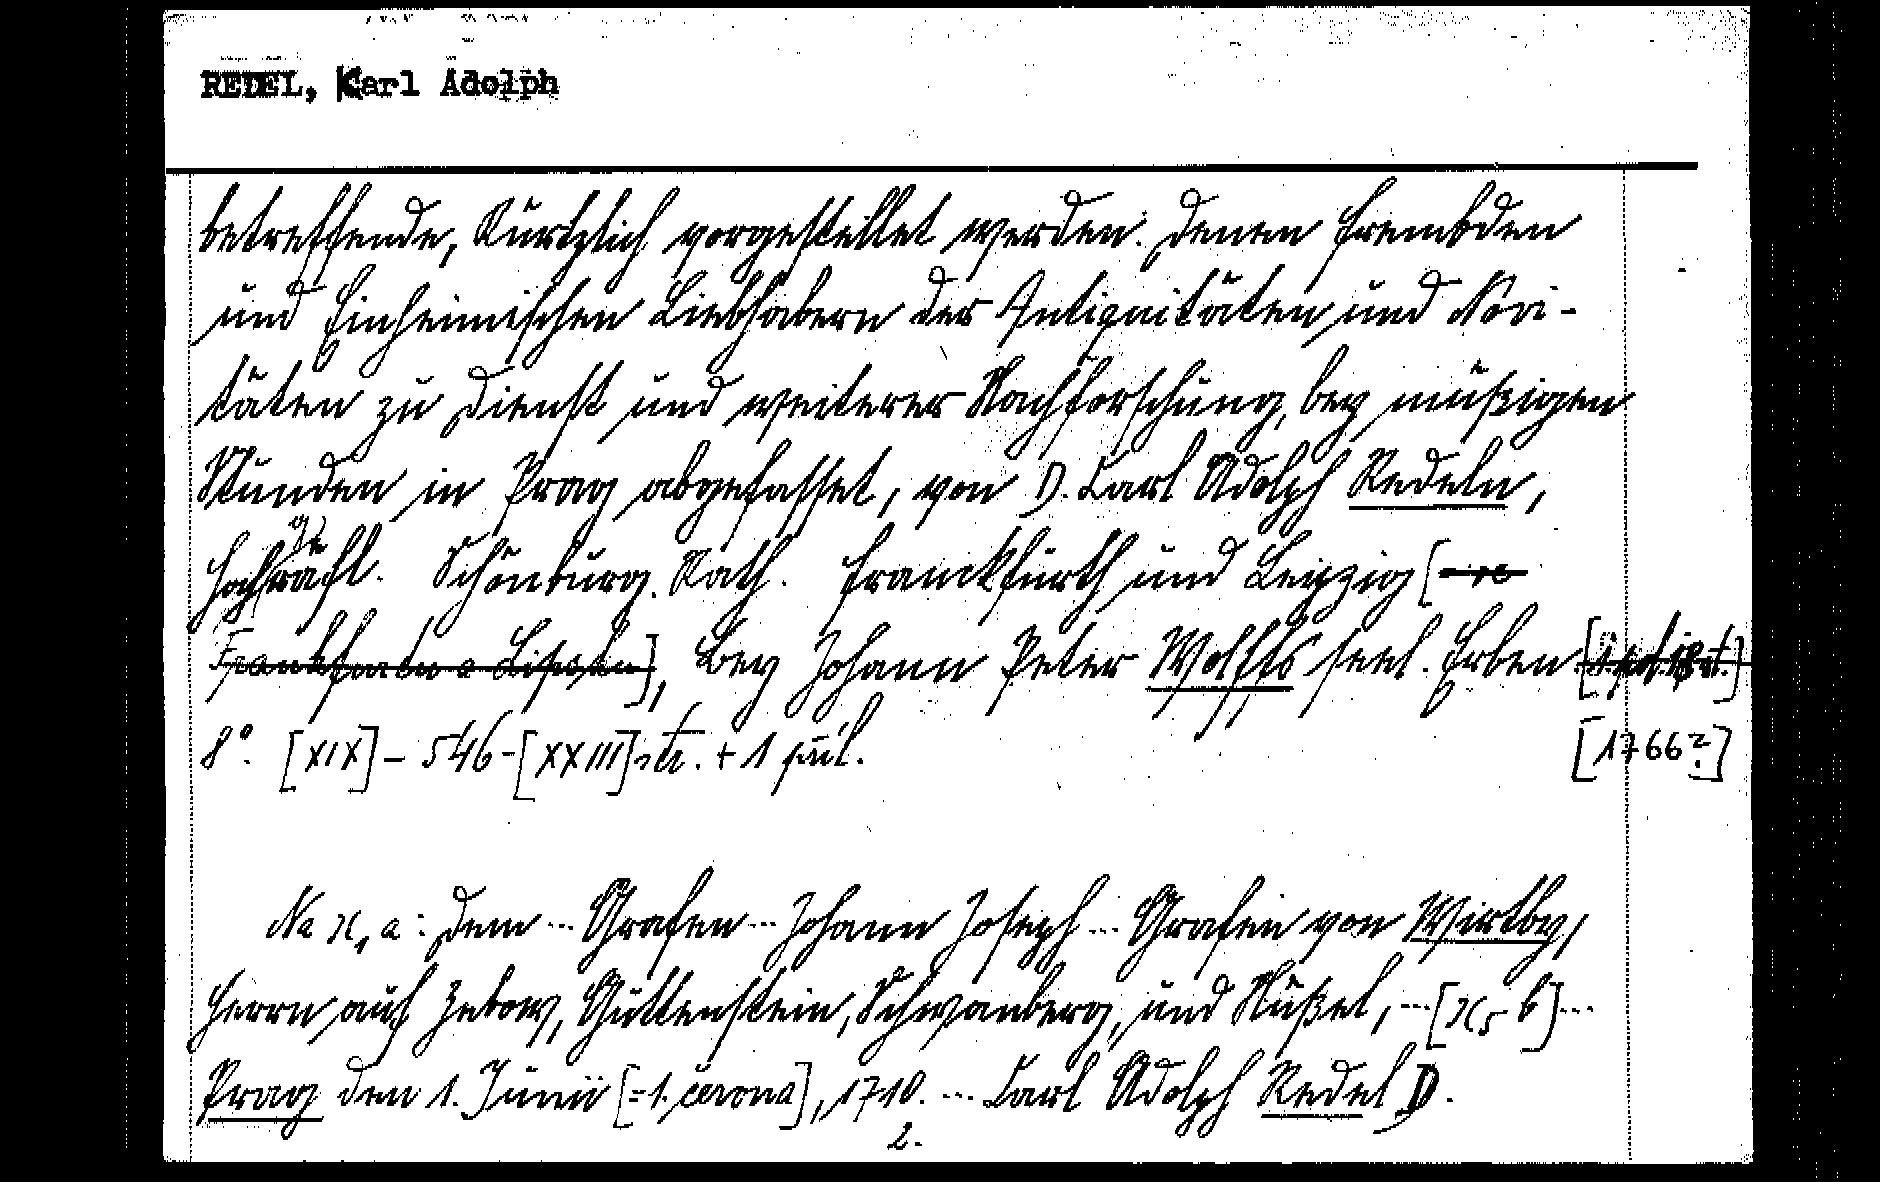 REDEL, Carl Adolph
betreffende, Kürtzlich vorgestellet werden. Denen frembden
und Einheimischen Liebhabern der Antiquitäten und Novi-
täten zu Dienst und weiterer Nachforschung, bey müßigen
Stunden in Prag abgefasset, von D. Carl Adolph Redeln,
Hochgräfl. Schönburg. Rath. Franckfurth und Leipzig [= ve
Frankfurtu a Lipsku], Bey Johann Peter Wolffs seel. Erben
8°. [XIX] - 546 - [XXIII] str. + 1 příl. [1766?]
Na )( 2 a: Dem ... Grafen ... Johann Joseph ... Grafen von Wirtby,
Herrn auf Zebow, Guttenstein, Schwanberg, und Nüßel, ... [)( 5 b] ...
Prag den 1. Junii [= 1. června], 1710. ... Carl Adolph Redel D.
2.